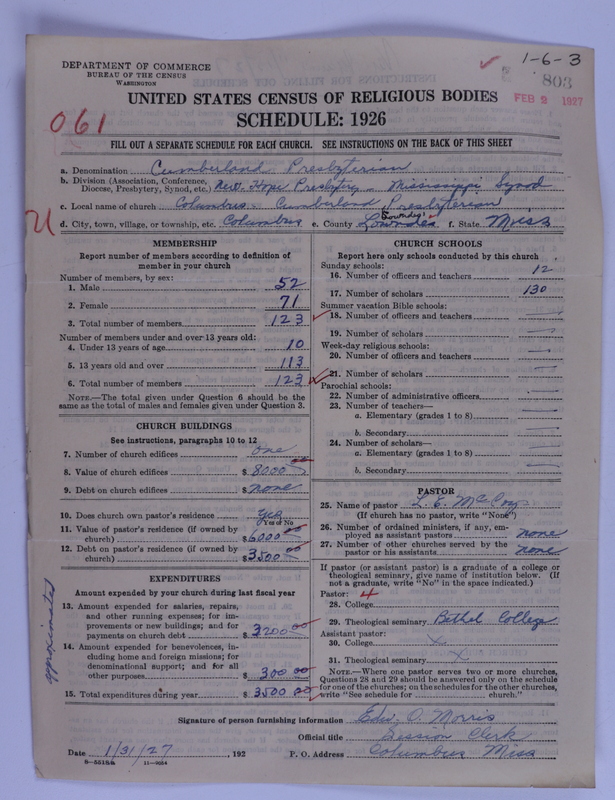 1-6-3
803
FEB 9 1927
DEPARTMENT OF COMMERCE
BUREAU OF THE CENSUS
WASHINGTON
061
UNITED STATES CENSUS OF RELIGIOUS BODIES
SCHEDULE: 1926
FILL OUT A SEPARATE SCHEDULE FOR EACH CHURCH. SEE INSTRUCTIONS ON THE BACK OF THIS SHEET
a. Denomination Cumberland Presbyterian
b. Division (Association, Conference, Diocese, Presbytery, Synod, etc.) New Hope Presbytery - Mississippi Synod
c. Local name of church Columbus - Cumberland Presbyterian
d. City, town, village, or township, etc. Columbus e. County Lowndes f. State Miss
MEMBERSHIP
Report number of members according to definition of member in your church
Number of members, by sex:
1. Male 52
2. Female 71
3. Total number of members 123
Number of members under and over 13 years old:
4. Under 13 years of age 10
5. 13 years old and over 113
6. Total number of members 123
NOTE.—The total given under Question 6 should be the same as the total of males and females given under Question 3.
CHURCH BUILDINGS
See instructions, paragraphs 10 to 12
7. Number of church edifices one
8. Value of church edifices $ 8000
9. Debt on church edifices $ none
10. Does church own pastor's residence yes
Yes or No
11. Value of pastor's residence (if owned by church) $ 6000
12. Debt on pastor's residence (if owned by church) $ 3500
EXPENDITURES
Amount expended by your church during last fiscal year
approximated
13. Amount expended for salaries, repairs, and other running expenses; for improvements or new buildings; and for payments on church debt $ 3200 00
14. Amount expended for benevolences, including home and foreign missions; for denominational support; and for all other purposes $ 300 00
15. Total expenditures during year $ 3500 00
CHURCH SCHOOLS
Report here only schools conducted by this church
Sunday schools:
16. Number of officers and teachers 12
17. Number of scholars 130
Summer vacation Bible schools:
18. Number of officers and teachers —
19. Number of scholars —
Week-day religious schools:
20. Number of officers and teachers —
21. Number of scholars —
Parochial schools:
22. Number of administrative officers —
23. Number of teachers—
a. Elementary (grades 1 to 8) —
b. Secondary —
24. Number of scholars—
a. Elementary (grades 1 to 8) —
b. Secondary —
PASTOR
25. Name of pastor L. E. McCoy
(If church has no pastor, write "None")
26. Number of ordained ministers, if any, employed as assistant pastors none
27. Number of other churches served by the pastor or his assistants none
If pastor (or assistant pastor) is a graduate of a college or theological seminary, give name of institution below. (If not a graduate, write "No" in the space indicated.)
Pastor: 4
28. College
29. Theological seminary Bethel College
Assistant pastor:
30. College x
31. Theological seminary x
NOTE.—Where one pastor serves two or more churches, Questions 28 and 29 should be answered only on the schedule for one of the churches; on the schedules for the other churches, write "See schedule for church."
Signature of person furnishing information Edw. O. Morris
Official title Session Clerk
Date 1/31/27, 192 P. O. Address Columbus Miss
8—5518a 11—9054